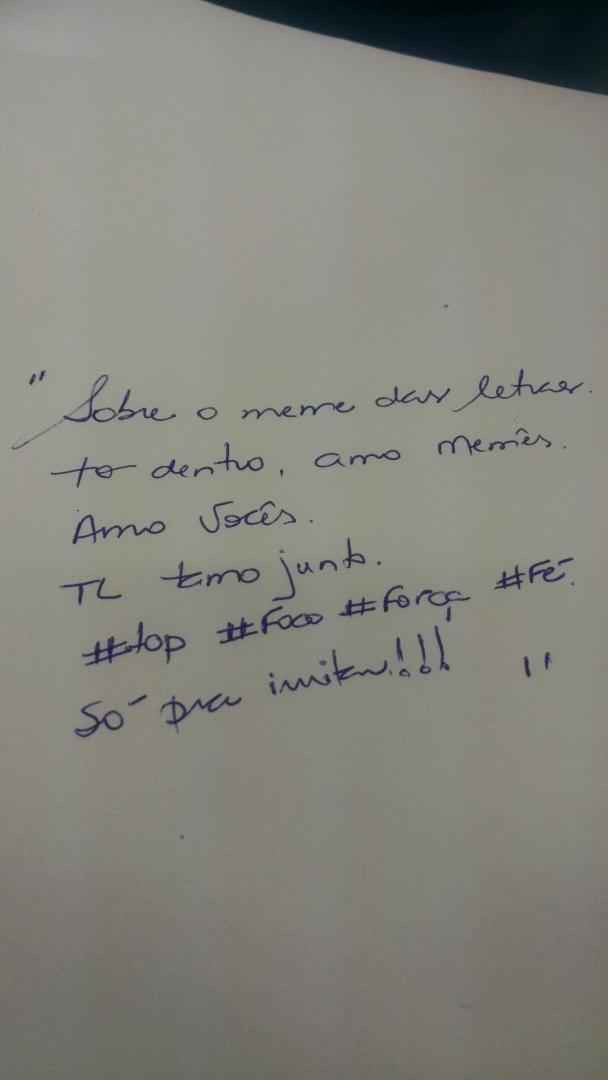 "Sobre o meme das letras.
to dentro, amo memês.
Amo Vocês.
TL tmo junto.
#top #Foco #Força #Fé.
Só pra irritar!!! "